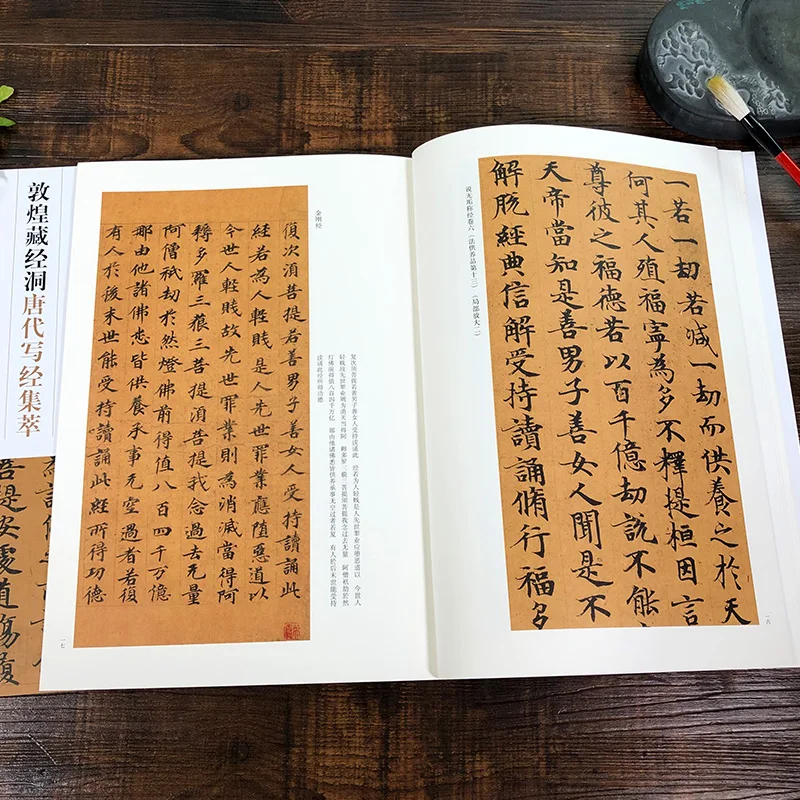 一若一劫若減一劫而供養之於天
何其人殖福寧為多不釋提桓因言
尊彼之福德若以百千億劫說不能
天帝當知是善男子善女人聞是不
解脫經典信解受持讀誦脩行福多
说无垢称经卷六(法供养品第十三)(局部放大二)
一六
金刚经
复次须菩提若善男子善女人受持读诵此 经若为人轻贱是人先世罪业应堕恶道以 今世人
轻贱故先世罪业则为消灭当得阿 耨多罗三藐三菩提须菩提我念过去无量 阿僧祇劫於然
灯佛前得值八百四千万亿 那由他诸佛悉皆供养承事无空过者若复 有人於后末世能受持
读诵此经所得功德
復次須菩提若善男子善女人受持讀誦此
經若為人輕賤是人先世罪業應墮惡道以
今世人輕賤故先世罪業則為消滅當得阿
耨多羅三藐三菩提須菩提我念過去无量
阿僧祇劫於然燈佛前得值八百四千万億
那由他諸佛悉皆供養承事无空過者若復
有人於後末世能受持讀誦此經所得功德
一七
敦煌藏经洞唐代写经集萃
菩提安處道傷履